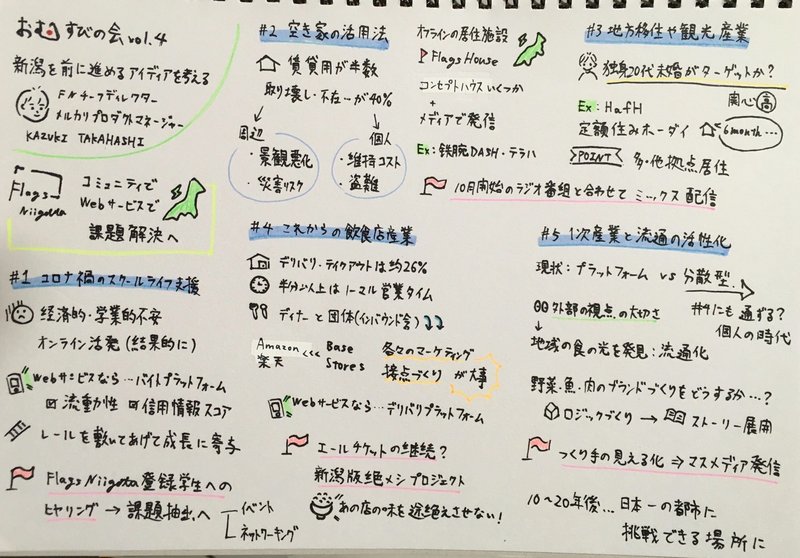 おむすびの会 vol.4
新潟を前に進めるアイディアを考える
FNチーフディレクター
メルカリプロダクトマネージャー
KAZUKI TAKAHASHI
Flags Niigata
コミュニティで
Webサービスで
課題解決へ
#1 コロナ禍のスクールライフ支援
経済的・学業的不安
オンライン活発(結果的に)
Webサービスなら…バイトプラットフォーム
流動性 信用情報スコア
レールを敷いてあげて成長に寄与
Flags Niigata登録学生への
ヒヤリング → 課題抽出へ
イベント
ネットワーキング
#2 空き家の活用法
賃貸用が半数
取り壊し・不在…が40%
周辺
・景観悪化
・災害リスク
個人
・維持コスト
・盗難
オフラインの居住施設
Flags House
コンセプトハウスいくつか
+
メディアで発信
Ex: 鉄腕DASH・テラハ
10月開始のラジオ番組と合わせて ミックス配信
#3 地方移住や観光産業
独身20代未婚がターゲットか?
関心高
Ex: HafH
定額住みホーダイ
6month…
POINT 多・他拠点居住
#4 これからの飲食店産業
デリバリ・テイクアウトは約26%
半分以上はノーマル営業タイム
ディナーと団体(インバウンド含)⤵⤵
Amazon
楽天
<<<
Base
Stores
各々のマーケティング
接点づくり が大事
Webサービスなら…デリバリプラットフォーム
エールチケットの継続?
新潟版絶メシプロジェクト
あの店の味を途絶えさせない!
#5 1次産業と流通の活性化
現状: プラットフォーム vs 分散型
外部の視点の大切さ
#4にも通ずる?
個人の時代
↓
地域の食の光を発見: 流通化
野菜・魚・肉のブランドづくりをどうするか…?
ロジックづくり → ストーリー展開
つくり手の見える化 ⇒ マスメディア発信
10〜20年後… 日本一の都市に
挑戦できる場所に